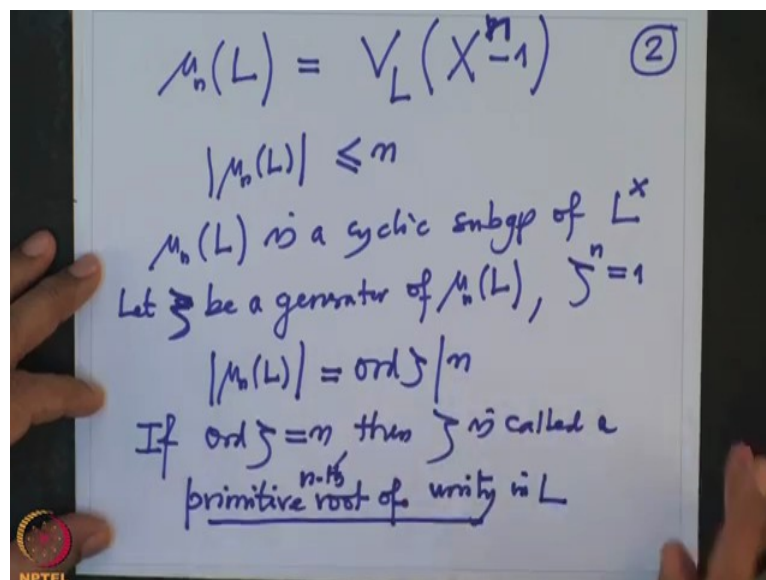 μₙ(L) = V_L(Xⁿ-1) ②
|μₙ(L)| ≤ n
μₙ(L) is a cyclic subgp of L^×
Let ζ be a generator of μₙ(L), ζⁿ = 1
|μₙ(L)| = ord ζ | n
If ord ζ = n, then ζ is called a
primitive n-th root of unity in L
NPTEL